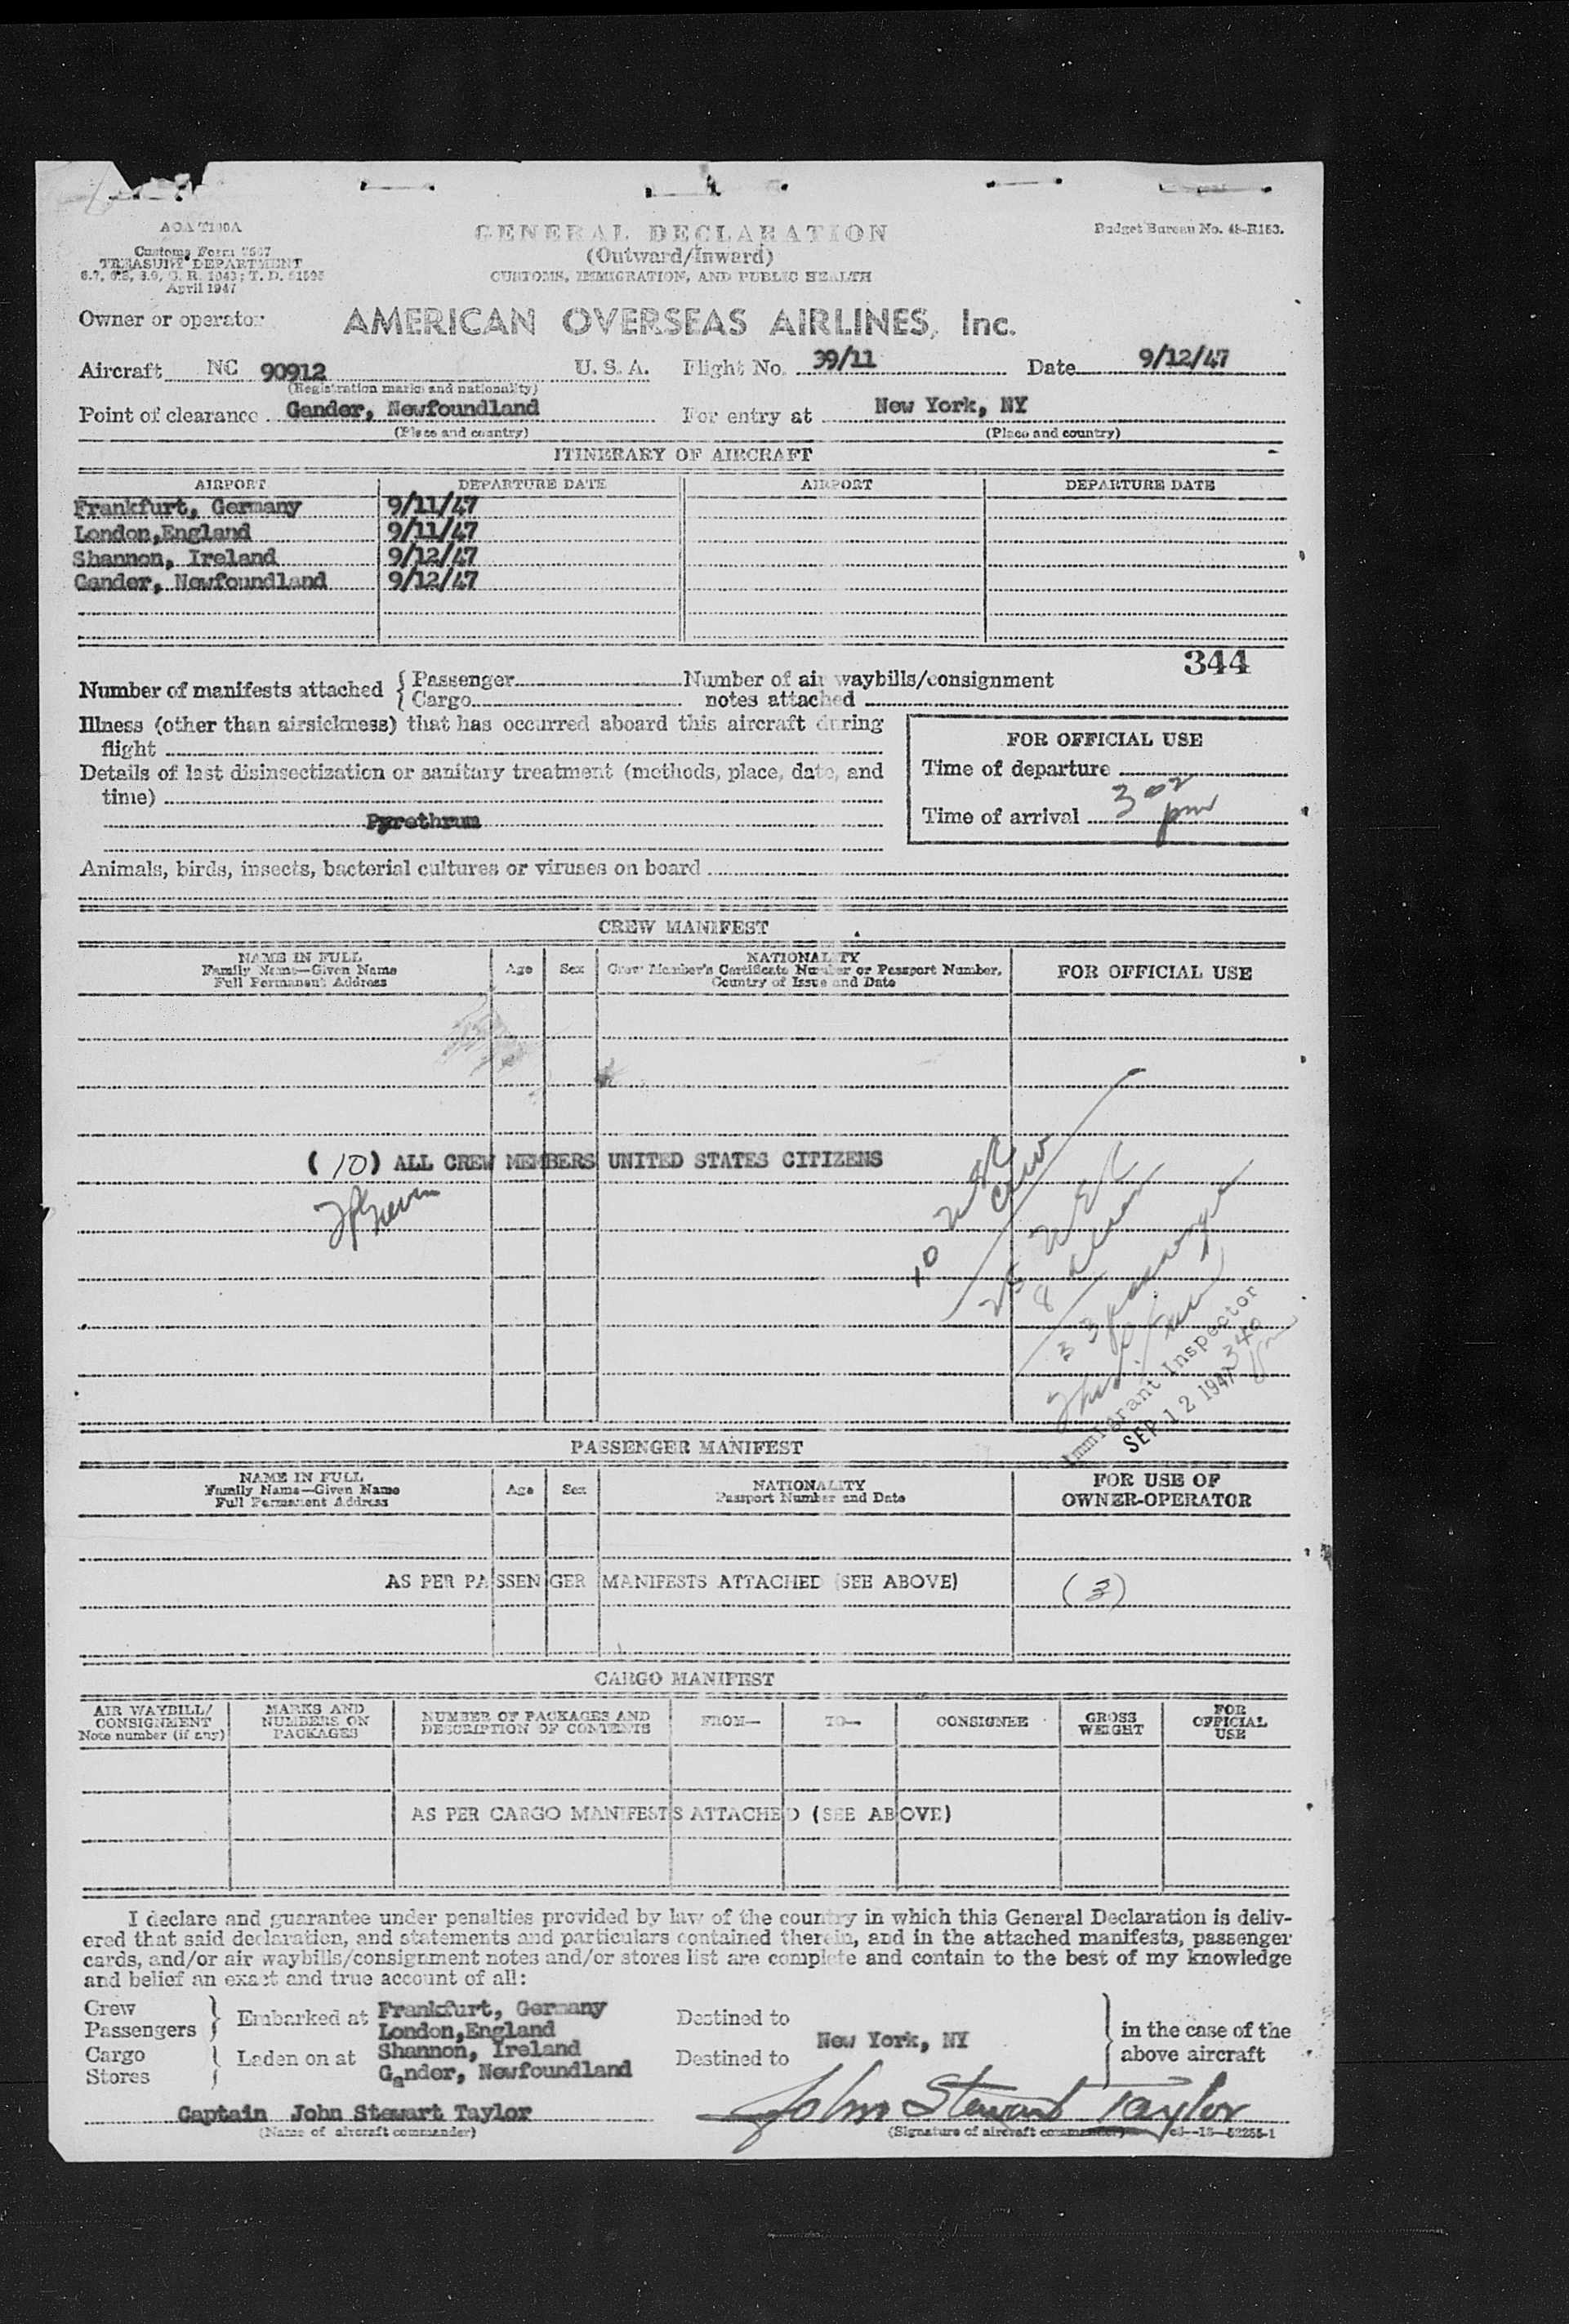 GENERAL DECLARATION
(Outward/Inward)
CUSTOMS, IMMIGRATION, AND PUBLIC HEALTH
Customs Form 7507
TREASURY DEPARTMENT
April 1947
Budget Bureau No. 48-R153.
Owner or operator AMERICAN OVERSEAS AIRLINES, Inc.
Aircraft NC 90912 U. S. A. Flight No. 39/11 Date 9/12/47
(Registration marks and nationality)
Point of clearance Gander, Newfoundland For entry at New York, NY
(Place and country) (Place and country)
ITINERARY OF AIRCRAFT
AIRPORT DEPARTURE DATE AIRPORT DEPARTURE DATE
Frankfurt, Germany 9/11/47
London,England 9/11/47
Shannon, Ireland 9/12/47
Gander, Newfoundland 9/12/47
344
Number of manifests attached { Passenger Number of air waybills/consignment
{ Cargo notes attached
Illness (other than airsickness) that has occurred aboard this aircraft during
flight
Details of last disinsectization or sanitary treatment (methods, place, date, and
time)
Pyrethrum
FOR OFFICIAL USE
Time of departure
Time of arrival 3 02 pm
Animals, birds, insects, bacterial cultures or viruses on board
CREW MANIFEST
NAME IN FULL
Family Name—Given Name
Full Permanent Address
Age
Sex
NATIONALITY
Crew Member's Certificate Number or Passport Number,
Country of Issue and Date
FOR OFFICIAL USE
(10) ALL CREW MEMBERS UNITED STATES CITIZENS
10 crew
8
33 passengers
Immigrant Inspector
SEP 12 1947
340
PASSENGER MANIFEST
NAME IN FULL
Family Name—Given Name
Full Permanent Address
Age
Sex
NATIONALITY
Passport Number and Date
FOR USE OF
OWNER-OPERATOR
AS PER PASSENGER MANIFESTS ATTACHED (SEE ABOVE) (3)
CARGO MANIFEST
AIR WAYBILL/
CONSIGNMENT
Note number (if any)
MARKS AND
NUMBERS ON
PACKAGES
NUMBER OF PACKAGES AND
DESCRIPTION OF CONTENTS
FROM—
TO—
CONSIGNEE
GROSS
WEIGHT
FOR
OFFICIAL
USE
AS PER CARGO MANIFESTS ATTACHED (SEE ABOVE)
I declare and guarantee under penalties provided by law of the country in which this General Declaration is deliv-
ered that said declaration, and statements and particulars contained therein, and in the attached manifests, passenger
cards, and/or air waybills/consignment notes and/or stores list are complete and contain to the best of my knowledge
and belief an exact and true account of all:
Crew
Passengers } Embarked at
Cargo
Stores } Laden on at
Frankfurt, Germany
London,England
Shannon, Ireland
Gander, Newfoundland
Destined to
Destined to
New York, NY
} in the case of the
above aircraft
Captain John Stewart Taylor John Stewart Taylor
(Name of aircraft commander) (Signature of aircraft commander)